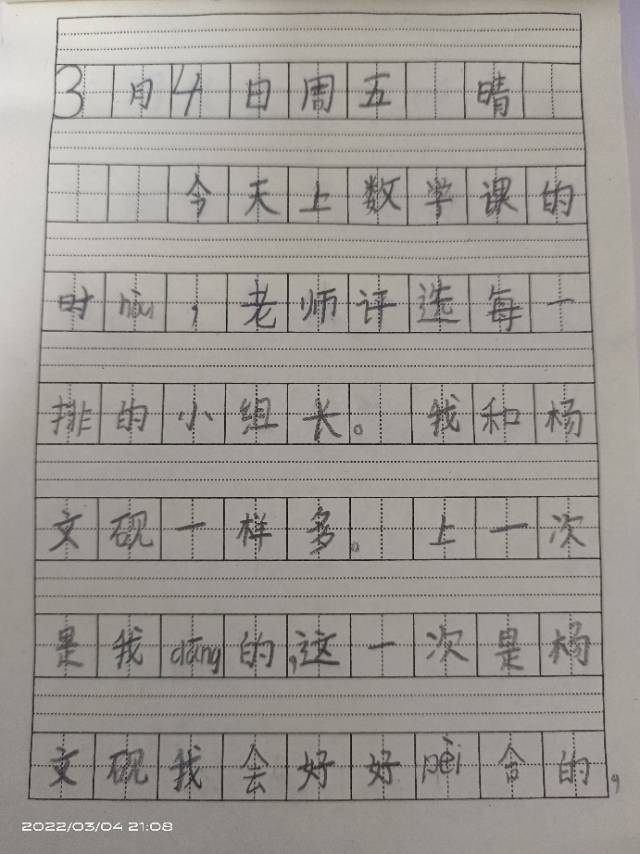 3月4日周五 晴
今天上数学课的
时hòu，老师评选每一
排的小组长。我和杨
文砚一样多。上一次
是我dāng的，这一次是杨
文砚我会好好pèi合的，
2022/03/04 21:08